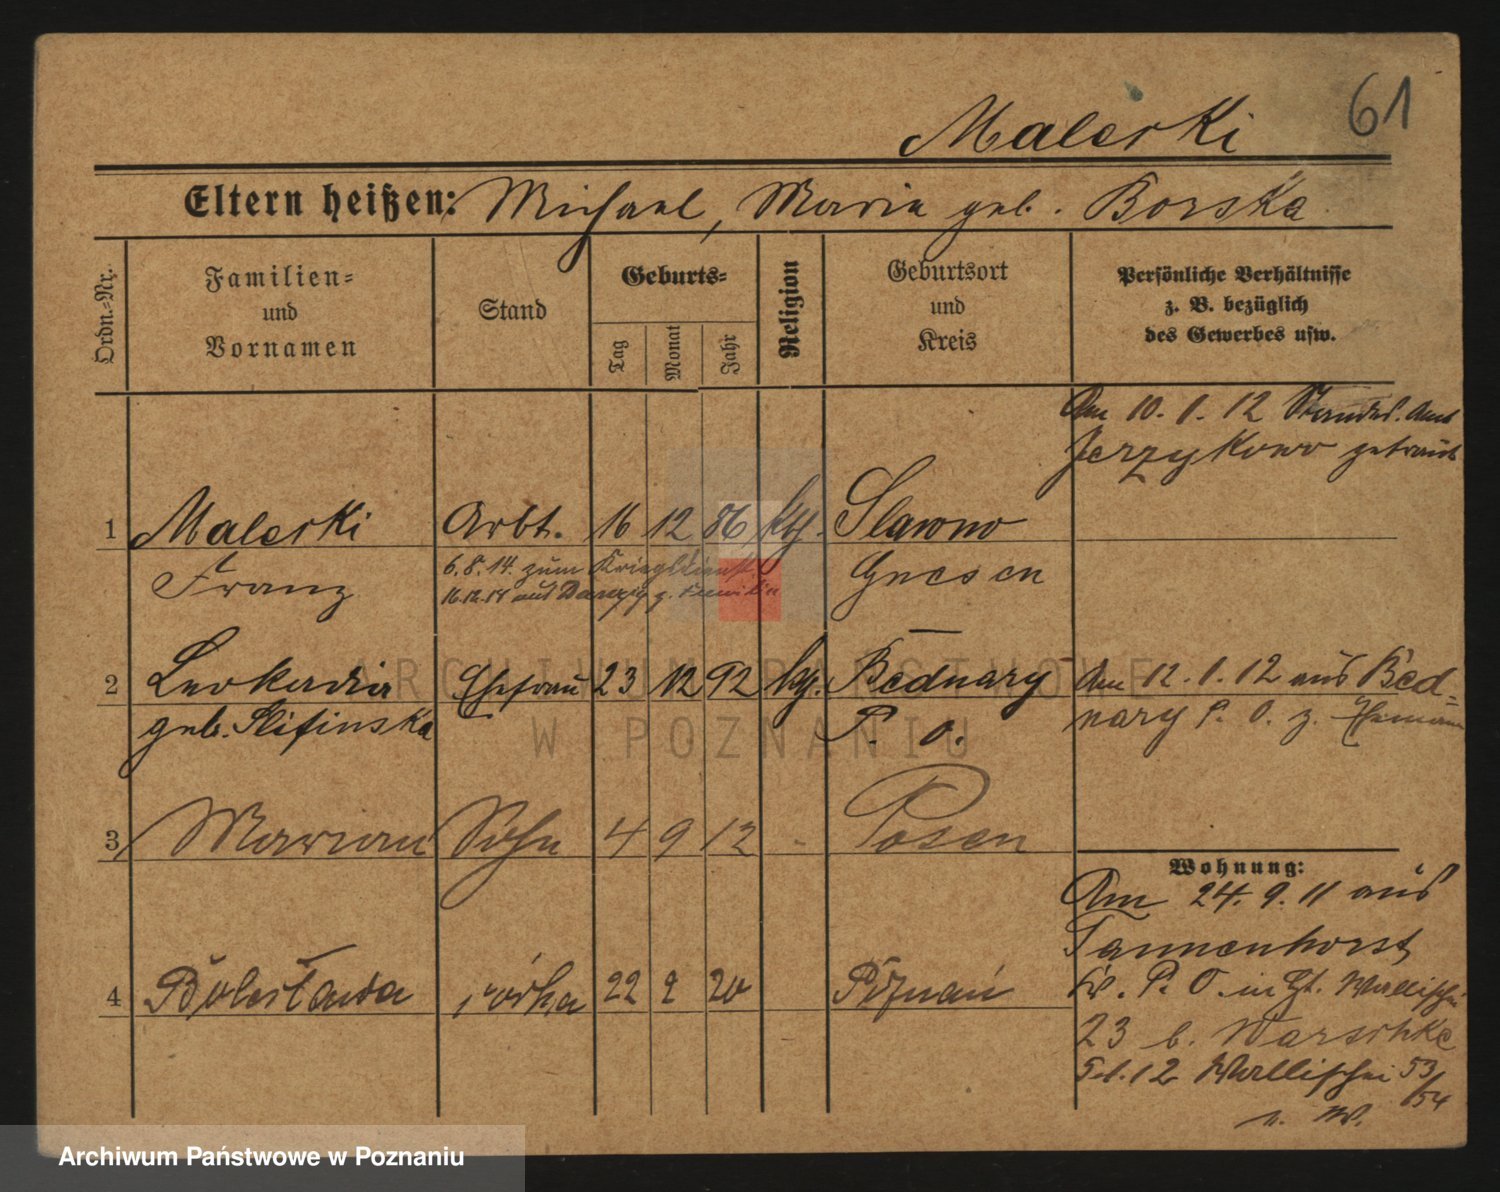 61
Maleski
Eltern heißen: Michael, Maria geb. Borska
Ordn.=Nr.
Familien=
und
Vornamen
Stand
Geburts=
Tag
Monat
Jahr
Religion
Geburtsort
und
Kreis
Persönliche Verhältnisse
z. B. bezüglich
des Gewerbes usw.
Am 10. 1. 12 Standes. Amt
Jerzykowo getraut
1 Maleski Arbt. 16 12 86 kth. Slawno
Franz Gnesen
6. 8. 14. zum Kriegsdienst.
aus Danzig z. Familie
2 Leokadia Ehefrau 23 12 92 kth. Bednary
geb. P. O.
Am 12. 1. 12 aus Bed=
nary P. O. z. Ehemann
3 Marian Sohn 4 9 12 - Posen
4 Bolesława córka 22 2 20 Poznań
Wohnung:
Am 24. 9. 11 aus
Tannenhorst
Kr. P. O. Wallischei
23 b. Warschke
Wallischei 53/54
ARCHIWUM PAŃSTWOWE
W POZNANIU
Archiwum Państwowe w Poznaniu